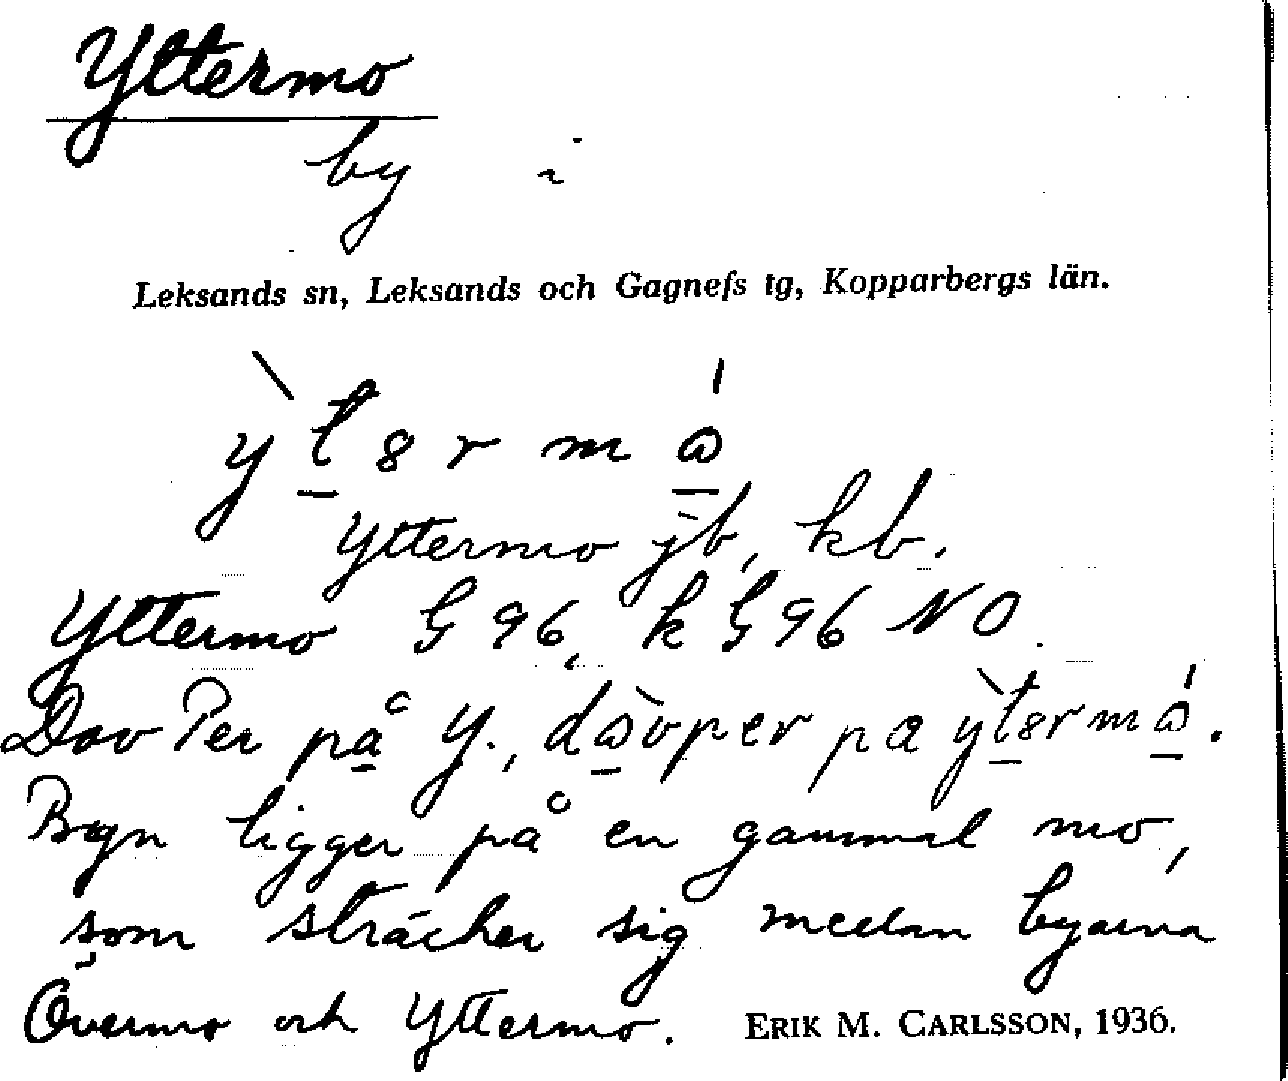 Yttermo
by i
Leksands sn, Leksands och Gagnefs tg, Kopparbergs län.
Yttermo jb, kb.
Yttermo G 96, k G 96 NO.
Dav Per på Y.,
Byn ligger på en gammal mo,
som sträcker sig mellan byarna
Övermo och Yttermo. ERIK M. CARLSSON, 1936.